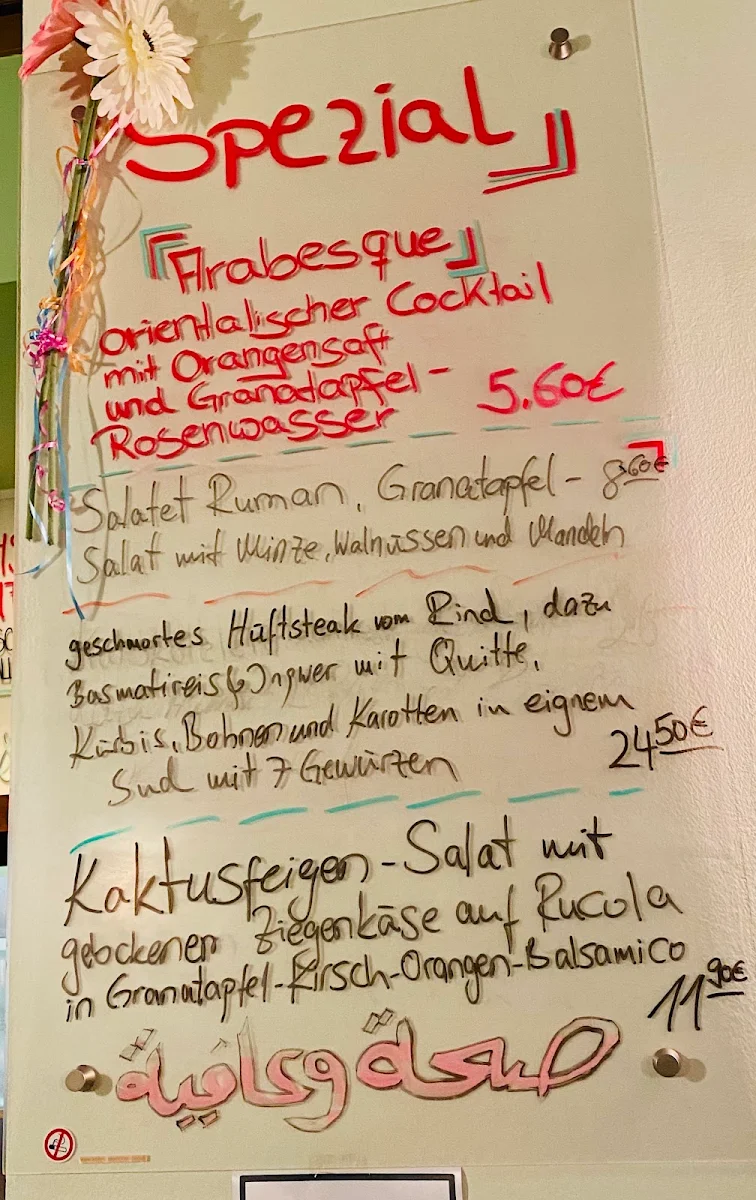 Spezial
Arabesque
orientalischer Cocktail
mit Orangensaft
und Granatapfel-
Rosenwasser 5.60€
Salatet Ruman, Granatapfel- 8,60€
Salat mit Minze, Walnüssen und Mandeln
geschmortes Hüftsteak vom Rind, dazu
Basmatireis(,) Ingwer mit Quitte,
Kürbis, Bohnen und Karotten in eignem
Sud mit 7 Gewürzen 24 50€
Kaktusfeigen-Salat mit
gebockenen Ziegenkäse auf Rucola
in Granatapfel-Kirsch-Orangen-Balsamico
11 90€
صحة وعافية